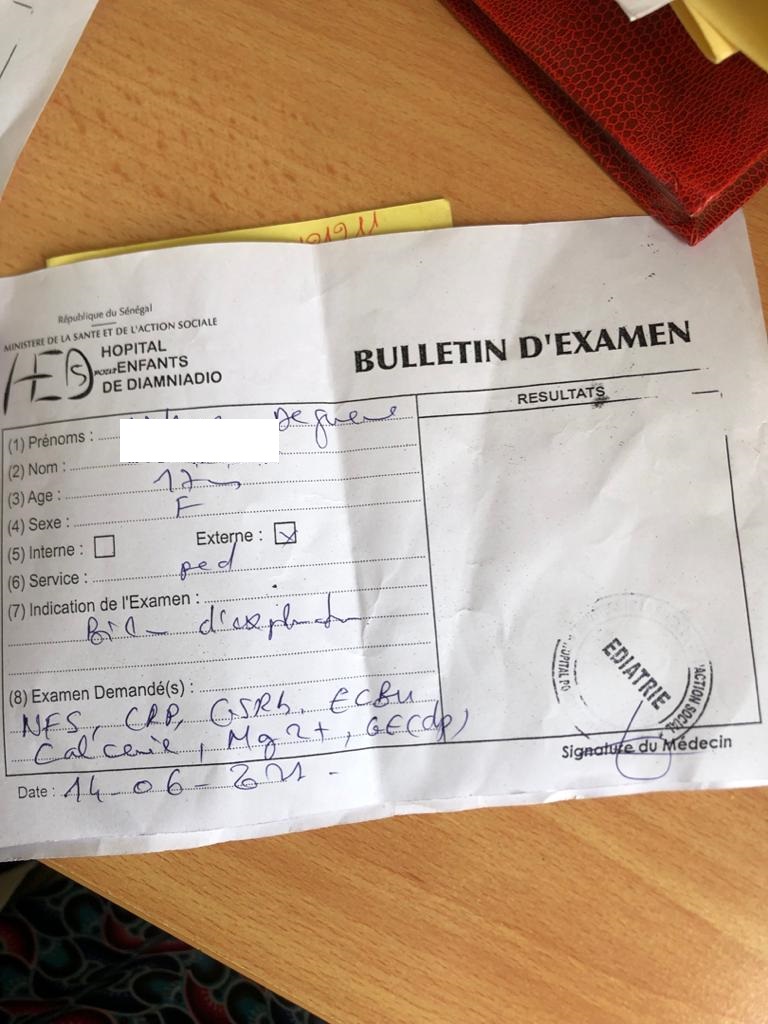 République du Sénégal
MINISTERE DE LA SANTE ET DE L'ACTION SOCIALE
HED(s) HOPITAL
POUR ENFANTS
DE DIAMNIADIO
BULLETIN D'EXAMEN
(1) Prénoms :
(2) Nom :
(3) Age :
(4) Sexe : F
(5) Interne : Externe :
(6) Service : ped
(7) Indication de l'Examen :
(8) Examen Demandé(s) :
NFS, CRP, GSRh. ECBU
Calcemie, Mg2+, GE(dp)
Date : 14-06-2021-
RESULTATS
EDIATRIE
ACTION SOCIAL
Signature du Médecin